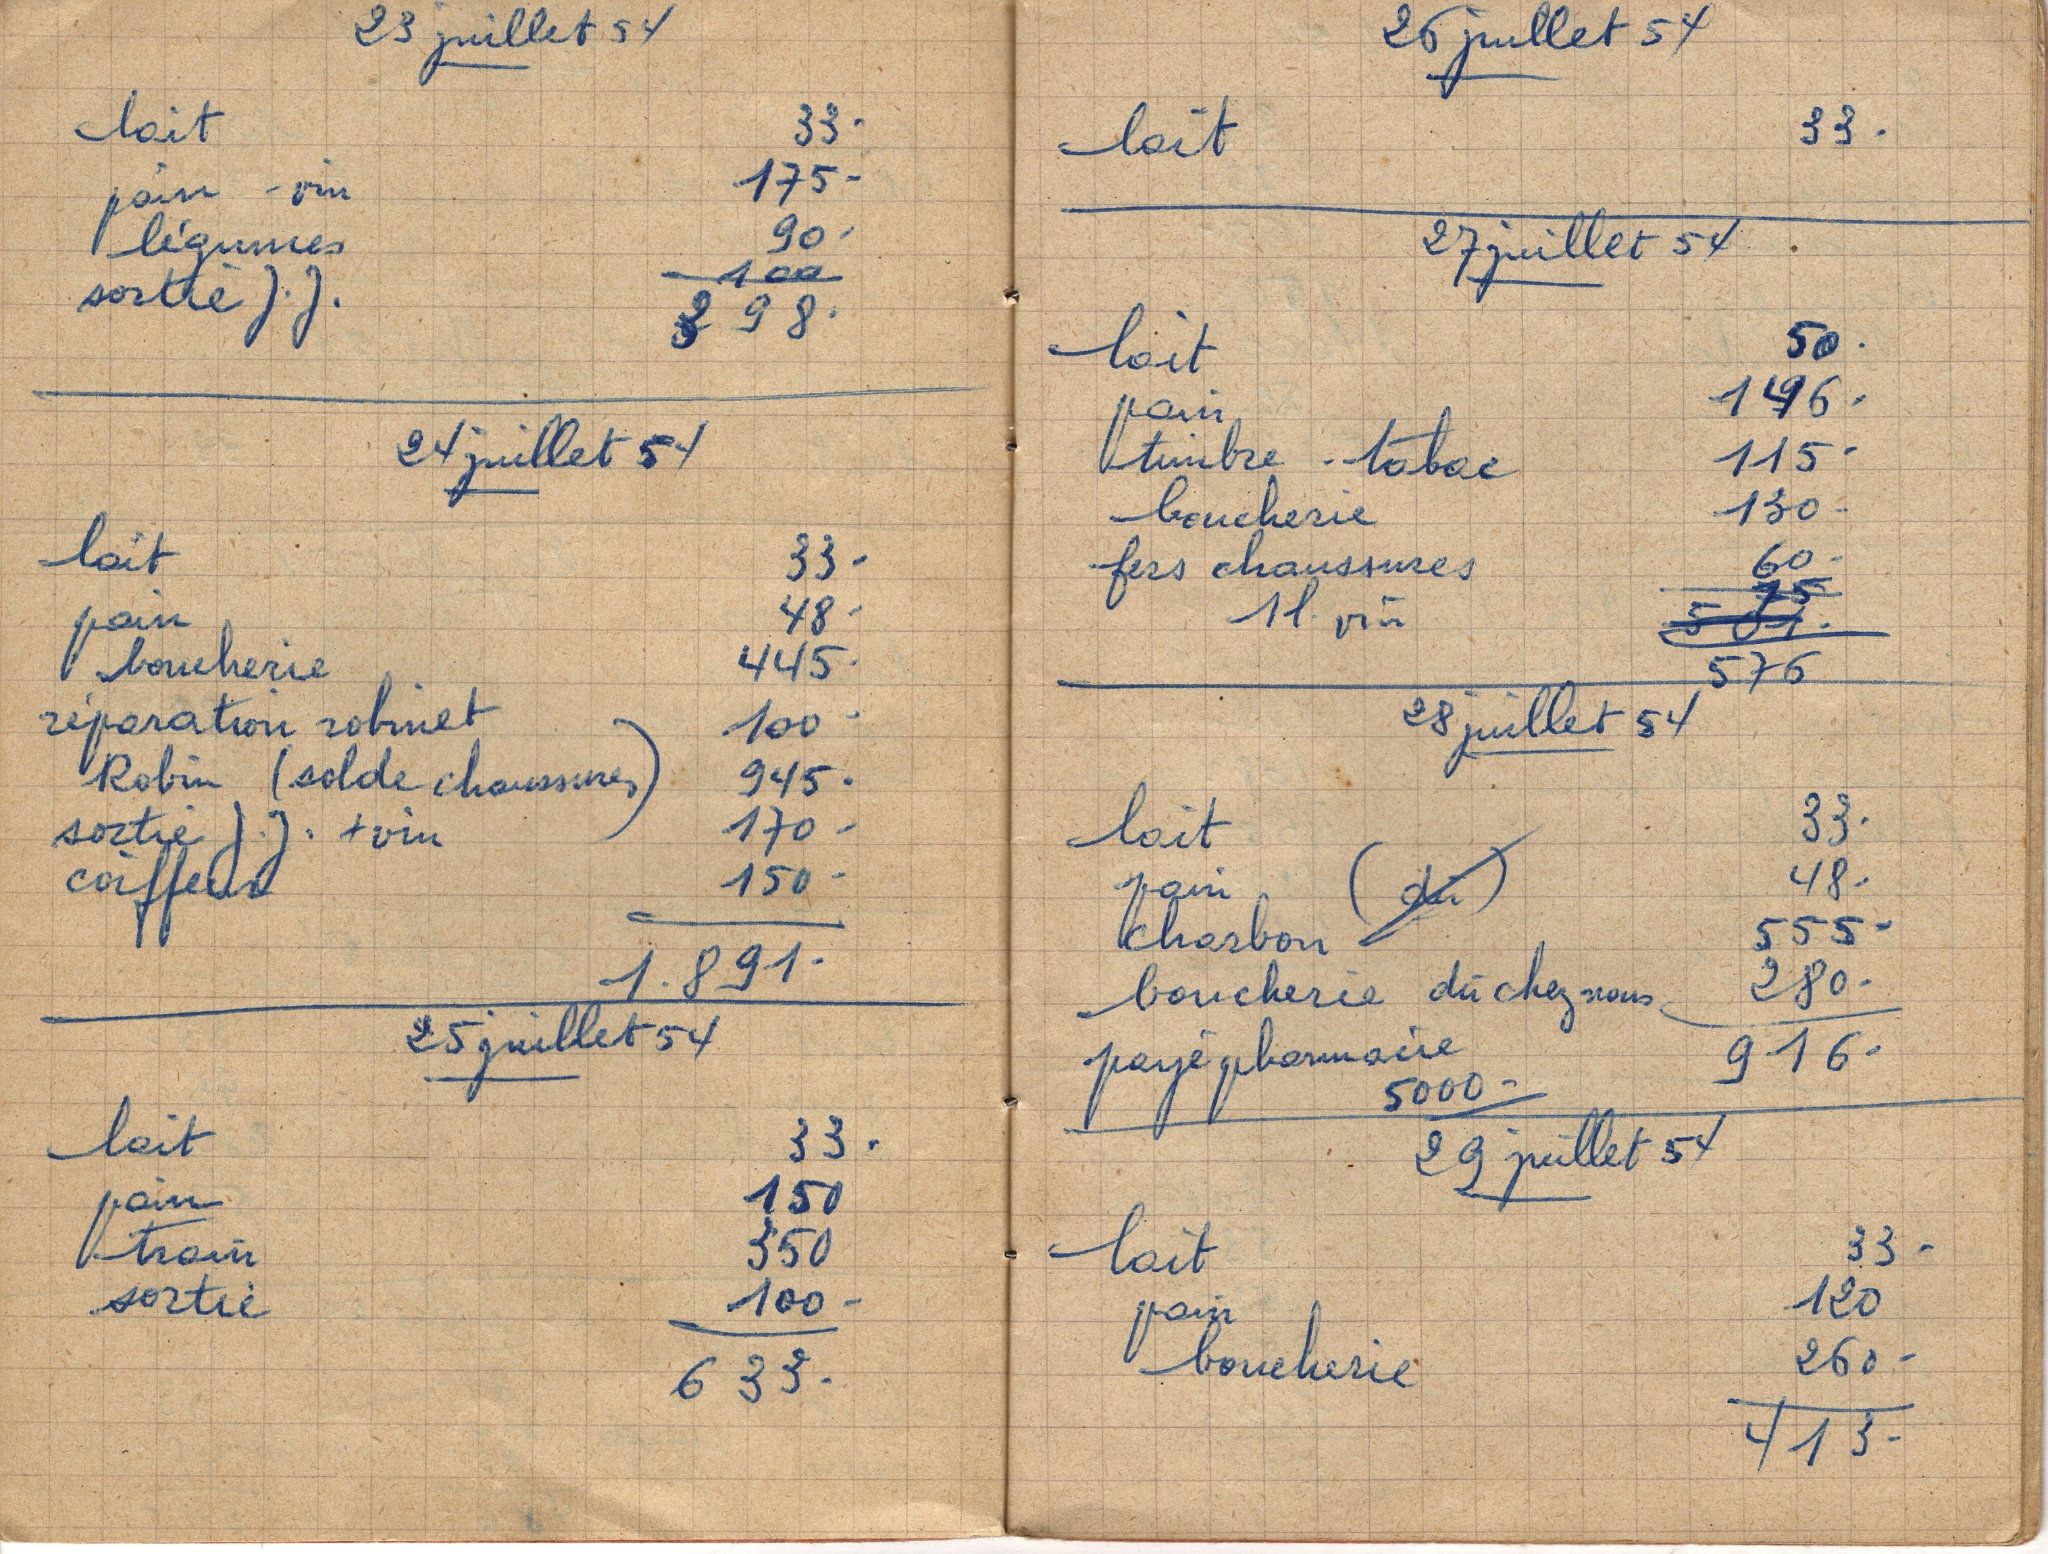 23 juillet 54
lait 33.
pain - vin 175-
légumes 90.
sortie J.J. 100
398.
24 juillet 54
lait 33.
pain 48.
boucherie 445.
réparation robinet 100.
Robin (solde chaussures) 945.
sortie J.J. + vin 170-
coiffeur 150-
1.891.
25 juillet 54
lait 33.
pain 150
train 350
sortie 100-
633.
26 juillet 54
lait 33.
27 juillet 54
lait 50.
pain 146-
timbre - tabac 115-
boucherie 130-
fers chaussures 60-
1l. vin 75
501.
576
28 juillet 54
lait 33.
pain (dû) 48.
charbon 555-
boucherie dû chez nous 280-
payé pharmacie 916-
5000-
29 juillet 54
lait 33-
pain 120
boucherie 260-
413-